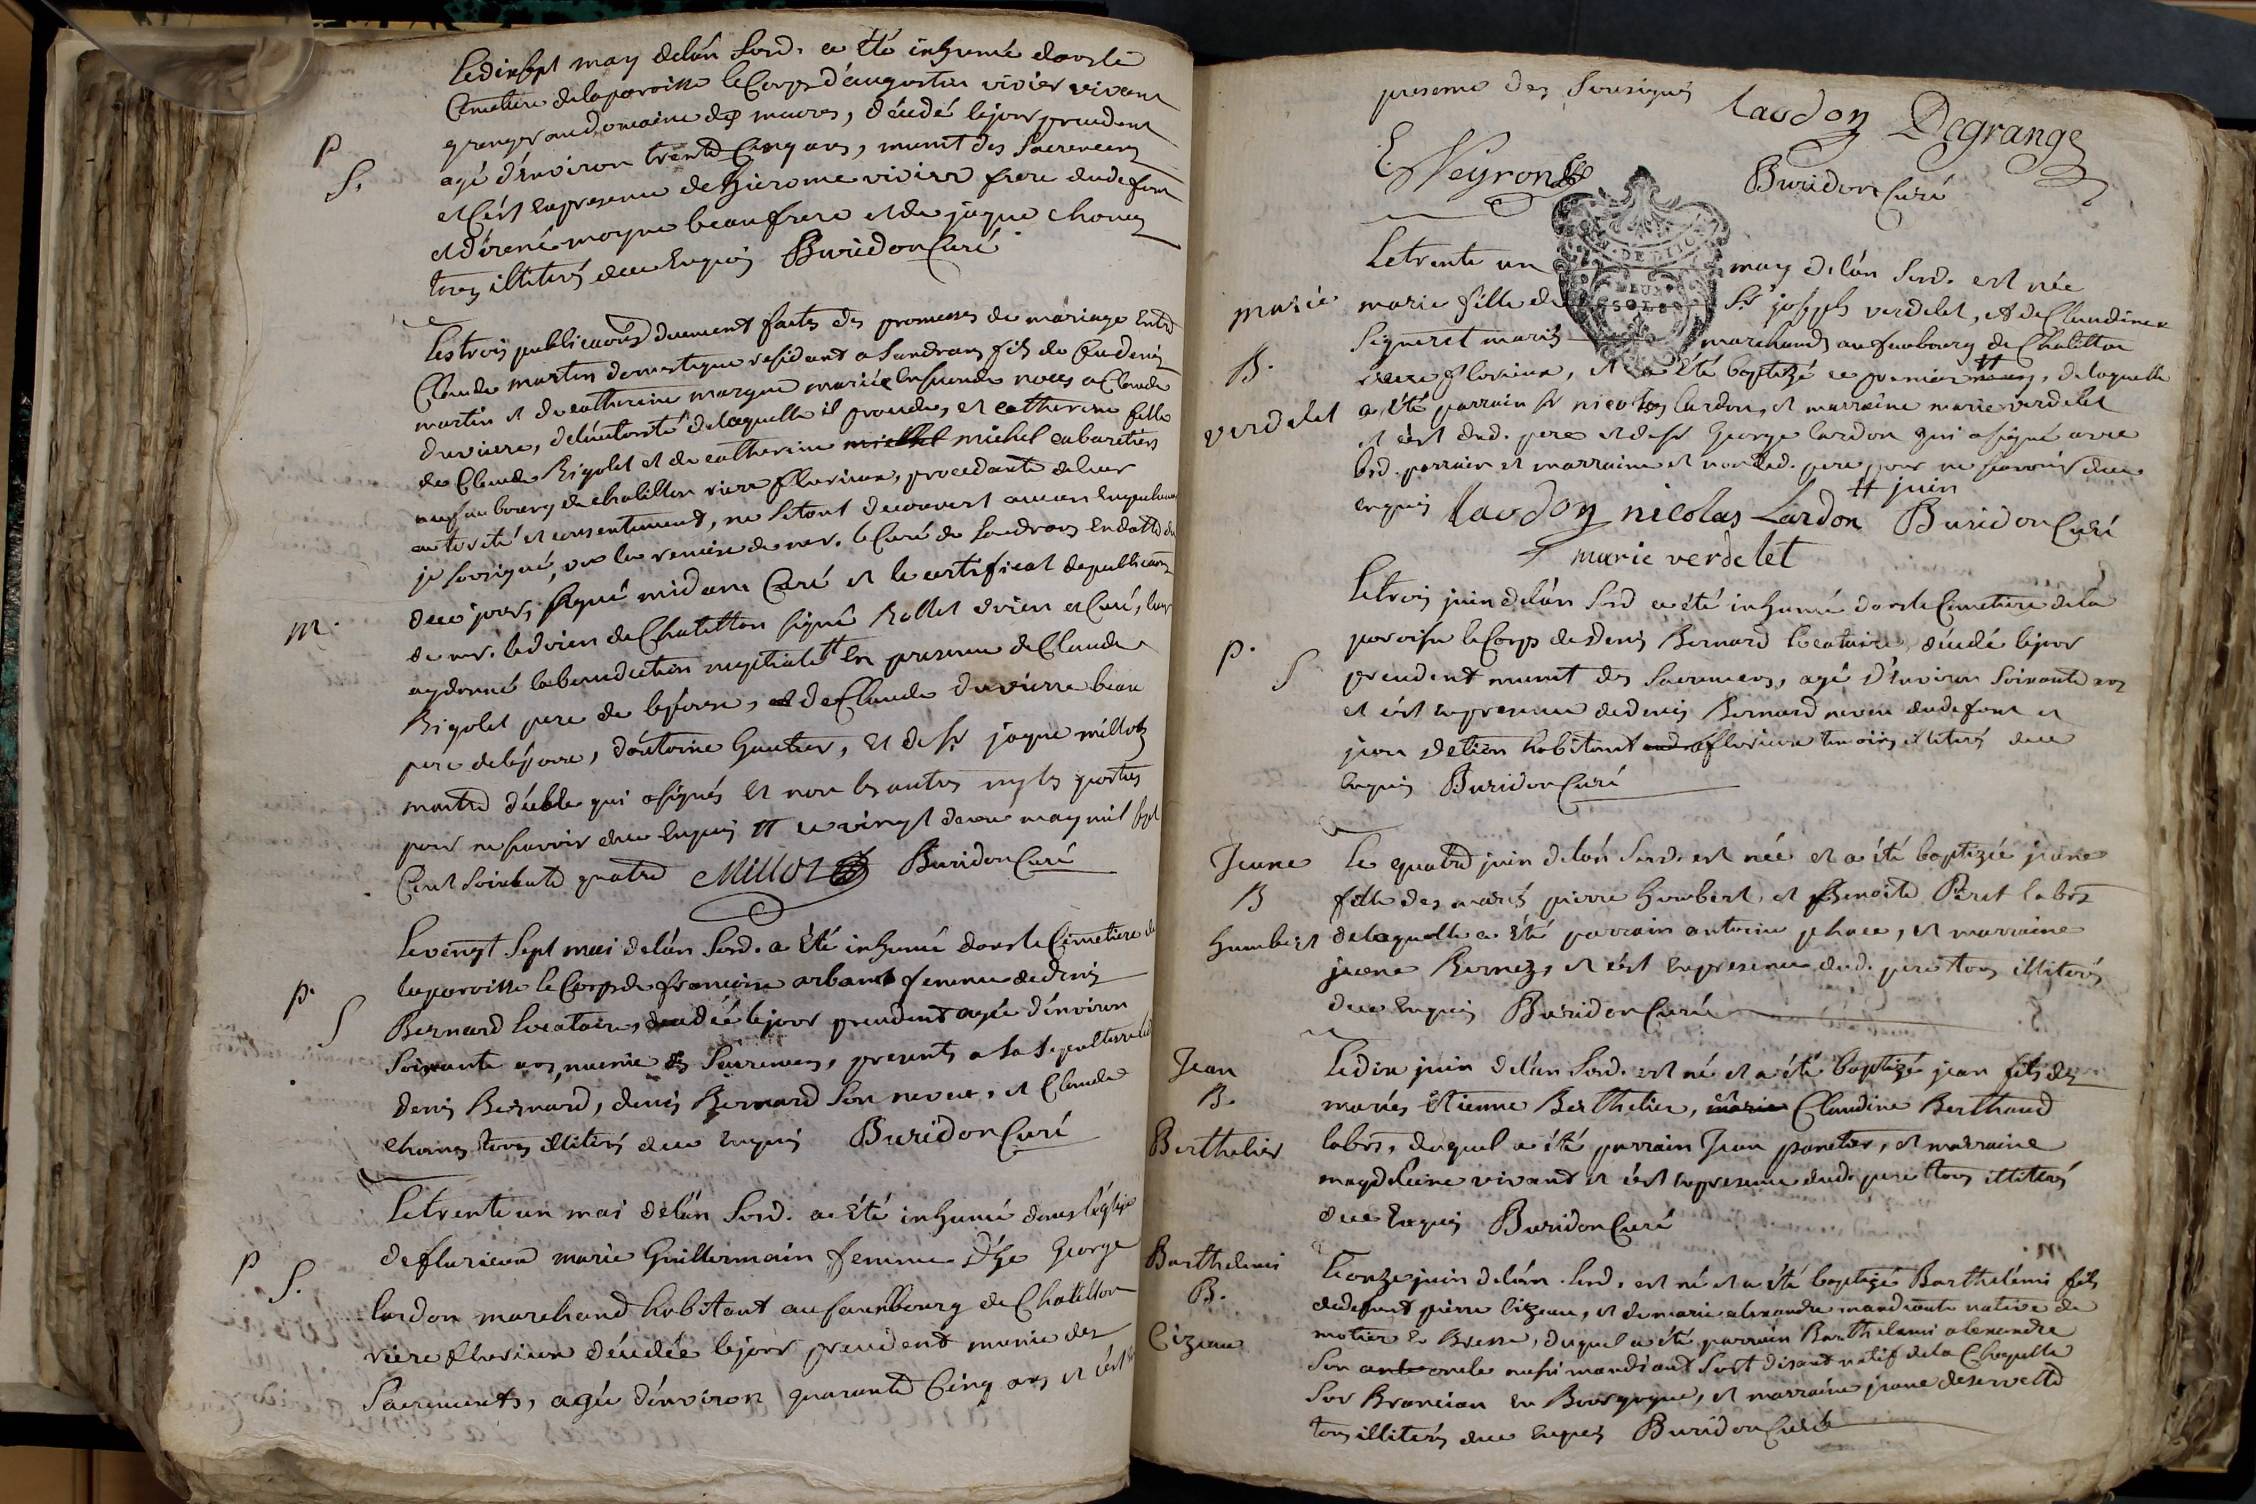 Le dix sept may de l'an susd. a été inhumé dans le
Cimetiere de la paroisse le Corps d'augustin vivier vivant
granger au domaine des mures, décedé le jour precedent
P
S.
agé d'environ trente Cinq ans, munit des Sacremens
et c'est en presence de hierome vivier frere dud. defunt
et d'irené moyne beaufrere et de jaque chanez
tous illiterés de ce enquis Buridon Curé
Les trois publications duement faites des promesses de mariage Entre
Claude martin domestique residant a Sandrans fils de feu denis
martin et de catherine margue mariée en seconde noces a Claude
duviere, de l'autorité de laquelle il procede, et catherine fille
de Claude Rigolet et de catherine michel michel cabaretiers
au faubourg de chatillon riere flurieux, procedante de leur
autorité et consentement, ne s'etant decouvert aucun Empechement
je soussigné, vu la remise de mr. le Curé de Sandrans en datte du
M.
de ce jour, signé midan Curé et le certificat de publications
de mr. le doien de Chatillon signé Rollet doien et Curé, leur
ay donné la benediction nuptiale tt en presence de Claude
Rigolet pere de l'epouse, et de Claude duvierre beau
pere de l'epoux, d'antoine Gautier, et de sr. jaque millot
maitre d'école qui a signés et non les autres ny les parties
pour ne savoir de ce enquis tt ce vingt deux may mil sept
Cent soixante quatre Millot Buridon Curé
Le vingt sept mai de l'an susd. a été inhumé dans le Cimetiere de
la paroisse le Corps de françoise arband femme de denis
P.
S
Bernard locataire, decedée le jour precedent agée d'environ
soixante ans, munie des Sacremens, presents a sa sepulture led.
denis Bernard, denis Bernard son neveu, et Claude
chanez tous illiterés de ce enquis Buridon Curé
Le trente un mai de l'an susd. a été inhumé dans l'église
de flurieux marie Guillermain femme d'hte George
P
S.
lardon marchand habitant au fauxbourg de Chatillon
riere flurieux décedée le jour precedent munie des
Sacrements, agée d'environ quarante Cinq ans et c'est en
presence des soussignés lardon Degrange
E. Veyron Buridon Curé
DE LION
DEUX
SOLS
Le trente un may de l'an susd. est née
marie
marie fille de Sr. joseph verdelet, et de Claudine
Signeret mariés marchands au fauxbourg de Chatillon
B.
riere flurieux, et a été baptizé ce premier tt, de laquelle
verdelet
a été parrain sr nicolas lardon, et marraine marie verdelet
et c'est dud. pere et de sr George lardon qui a signé avec
lesd. parrain et marraine et non led. pere pour ne savoir de ce
enquis tt juin
lardon nicolas Lardon Buridon Curé
marie verdelet
Le trois juin de l'an susd a été inhumé dans le Cimetiere de la
P.
S
paroisse le Corps de denis Bernard locataire, décedé le jour
precedent munit des Sacremens, agé d'environ soixante ans
et c'est en presence de denis Bernard neveu dud. defunt et
jean detion habitant flurieux temoins illiterés de ce
enquis Buridon Curé
Jeane
B
humbert
Le quatre juin de l'an susd. est née et a été baptizée jeane
fille des mariés pierre humbert et Benoite Peret labrs
de laquelle a été parrain antoine place, et marraine
jeane Bernez, et c'est en presence dud. pere tous illiterés
de ce enquis Buridon Curé
Jean
B.
Berthelier
Le dix juin de l'an susd. est né et a été baptizé jean fils des
mariés Etienne Berthelier, marie Claudine Berthaud
labrs, duquel a été parrain Jean panetier, et marraine
magdeleine vivant et c'est en presence dud. pere tous illiterés
de ce enquis Buridon Curé
Barthelemi
B.
Cizeau
Le onze juin de l'an susd. est né et a été baptizé Barthelémi fils
de defunt pierre Cizeau, et de marie alexandre mandiante native de
motier en Bresse, duquel a été parrain Barthelemi alexandre
son oncle aussi mandiant soit disant natif de la Chapelle
sur Brancian en Bourgogne, et marraine jeane deservetta
tous illiterés de ce enquis Buridon Curé